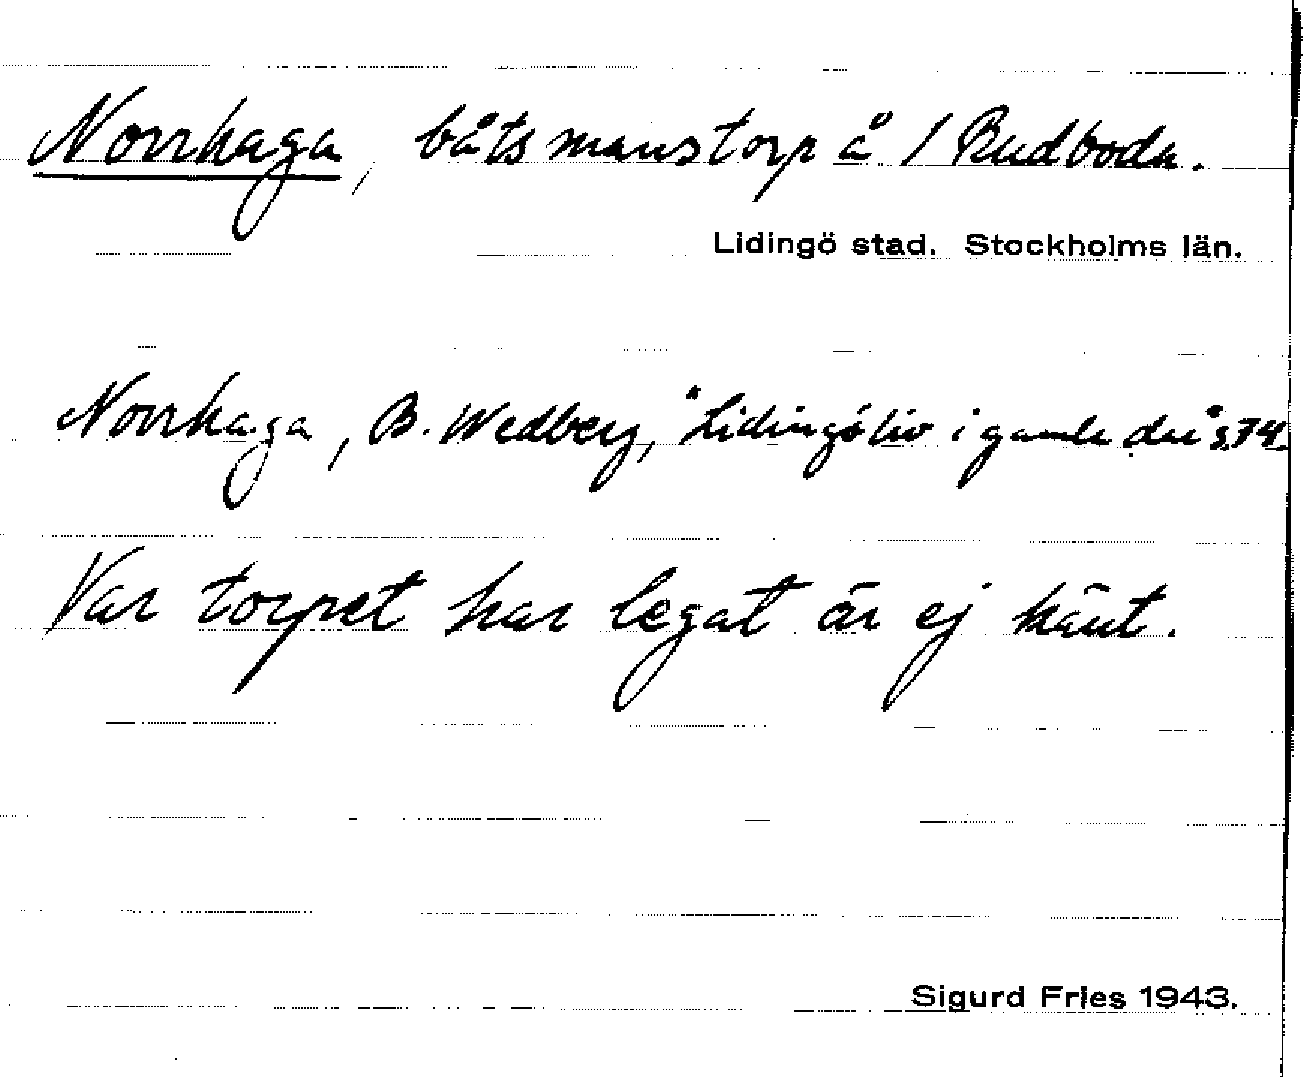 Norrhaga, båtsmanstorp å / Rudboda.
Lidingö stad. Stockholms län.
Norrhaga, B. Wedberg, "Lidingöliv i gamla da'r" s. 74.
Var torpet har legat är ej känt.
Sigurd Fries 1943.